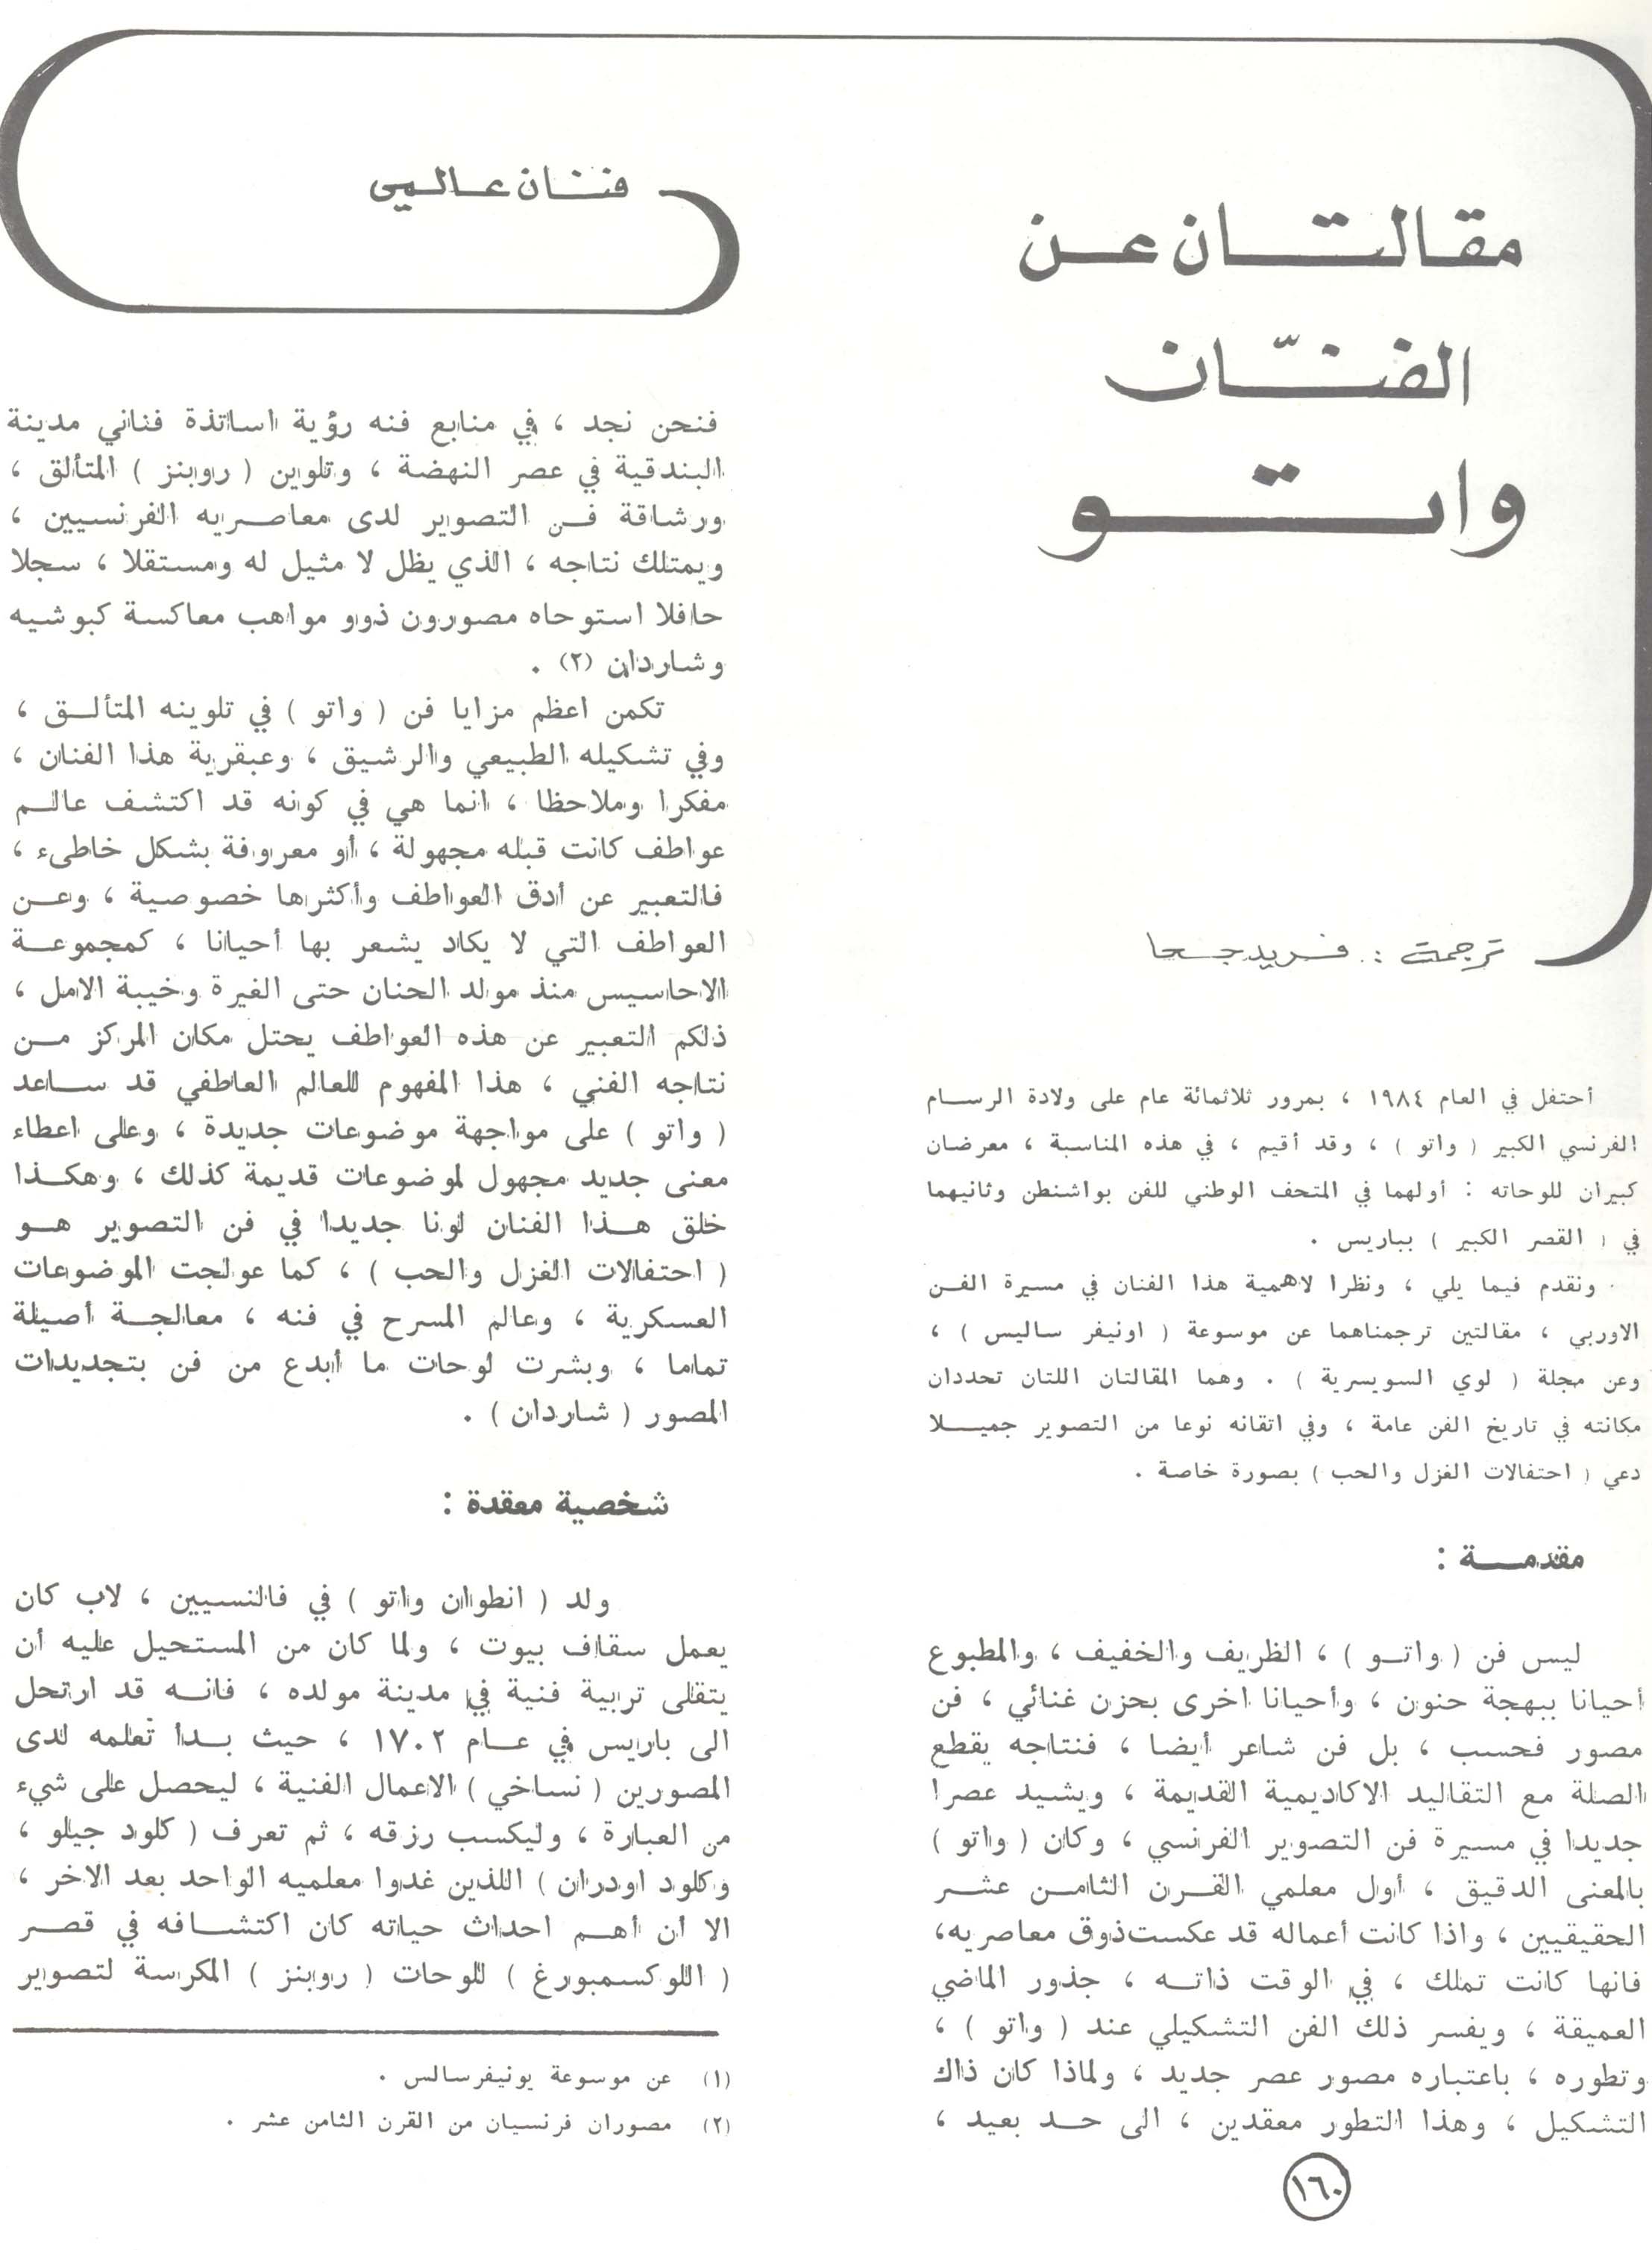 فنان عالمي
مقالتان عن
الفنّان
واتو
ترجمة : فريد جحا
أحتفل في العام ١٩٨٤ ، بمرور ثلاثمائة عام على ولادة الرسام
الفرنسي الكبير ( واتو ) ، وقد أقيم ، في هذه المناسبة ، معرضان
كبيران للوحاته : أولهما في المتحف الوطني للفن بواشنطن وثانيهما
في ( القصر الكبير ) بباريس .
ونقدم فيما يلي ، ونظرا لاهمية هذا الفنان في مسيرة الفن
الاوربي ، مقالتين ترجمناهما عن موسوعة ( اونيفر ساليس ) ،
وعن مجلة ( لوي السويسرية ) . وهما المقالتان اللتان تحددان
مكانته في تاريخ الفن عامة ، وفي اتقانه نوعا من التصوير جميلا
دعي ( احتفالات الغزل والحب ) بصورة خاصة .
مقدمة :
ليس فن ( واتو ) ، الظريف والخفيف ، والمطبوع
أحيانا ببهجة حنون ، وأحيانا اخرى بحزن غنائي ، فن
مصور فحسب ، بل فن شاعر أيضا ، فنتاجه يقطع
الصلة مع التقاليد الاكاديمية القديمة ، ويشيد عصرا
جديدا في مسيرة فن التصوير الفرنسي ، وكان ( واتو )
بالمعنى الدقيق ، أول معلمي القرن الثامن عشر
الحقيقيين ، واذا كانت أعماله قد عكست ذوق معاصريه،
فانها كانت تملك ، في الوقت ذاته ، جذور الماضي
العميقة ، ويفسر ذلك الفن التشكيلي عند ( واتو ) ،
وتطوره ، باعتباره مصور عصر جديد ، ولماذا كان ذاك
التشكيل ، وهذا التطور معقدين ، الى حد بعيد ،
فنحن نجد ، في منابع فنه رؤية اساتذة فناني مدينة
البندقية في عصر النهضة ، وتلوين ( روبنز ) المتألق ،
ورشاقة فن التصوير لدى معاصريه الفرنسيين ،
ويمتلك نتاجه ، الذي يظل لا مثيل له ومستقلا ، سجلا
حافلا استوحاه مصورون ذوو مواهب معاكسة كبوشيه
وشاردان (٢) .
تكمن اعظم مزايا فن ( واتو ) في تلوينه المتألق ،
وفي تشكيله الطبيعي والرشيق ، وعبقرية هذا الفنان ،
مفكرا وملاحظا ، انما هي في كونه قد اكتشف عالم
عواطف كانت قبله مجهولة ، أو معروفة بشكل خاطىء ،
فالتعبير عن أدق العواطف وأكثرها خصوصية ، وعن
العواطف التي لا يكاد يشعر بها أحيانا ، كمجموعة
الاحاسيس منذ مولد الحنان حتى الغيرة وخيبة الامل ،
ذلكم التعبير عن هذه العواطف يحتل مكان المركز من
نتاجه الفني ، هذا المفهوم للعالم العاطفي قد ساعد
( واتو ) على مواجهة موضوعات جديدة ، وعلى اعطاء
معنى جديد مجهول لموضوعات قديمة كذلك ، وهكذا
خلق هذا الفنان لونا جديدا في فن التصوير هو
( احتفالات الغزل والحب ) ، كما عولجت الموضوعات
العسكرية ، وعالم المسرح في فنه ، معالجة أصيلة
تماما ، وبشرت لوحات ما أبدع من فن بتجديدات
المصور ( شاردان ) .
شخصية معقدة :
ولد ( انطوان واتو ) في فالنسيين ، لاب كان
يعمل سقاف بيوت ، ولما كان من المستحيل عليه أن
يتقلى تربية فنية في مدينة مولده ، فانه قد ارتحل
الى باريس في عام ١٧٠٢ ، حيث بدأ تعلمه لدى
المصورين ( نساخي ) الاعمال الفنية ، ليحصل على شيء
من العبارة ، وليكسب رزقه ، ثم تعرف ( كلود جيلو ،
وكلود اودران ) اللذين غدوا معلميه الواحد بعد الاخر ،
الا أن أهم احداث حياته كان اكتشافه في قصر
( اللوكسمبورغ ) للوحات ( روبنز ) المكرسة لتصوير
(١) عن موسوعة يونيفرسالس .
(٢) مصوران فرنسيان من القرن الثامن عشر .
١٦٠